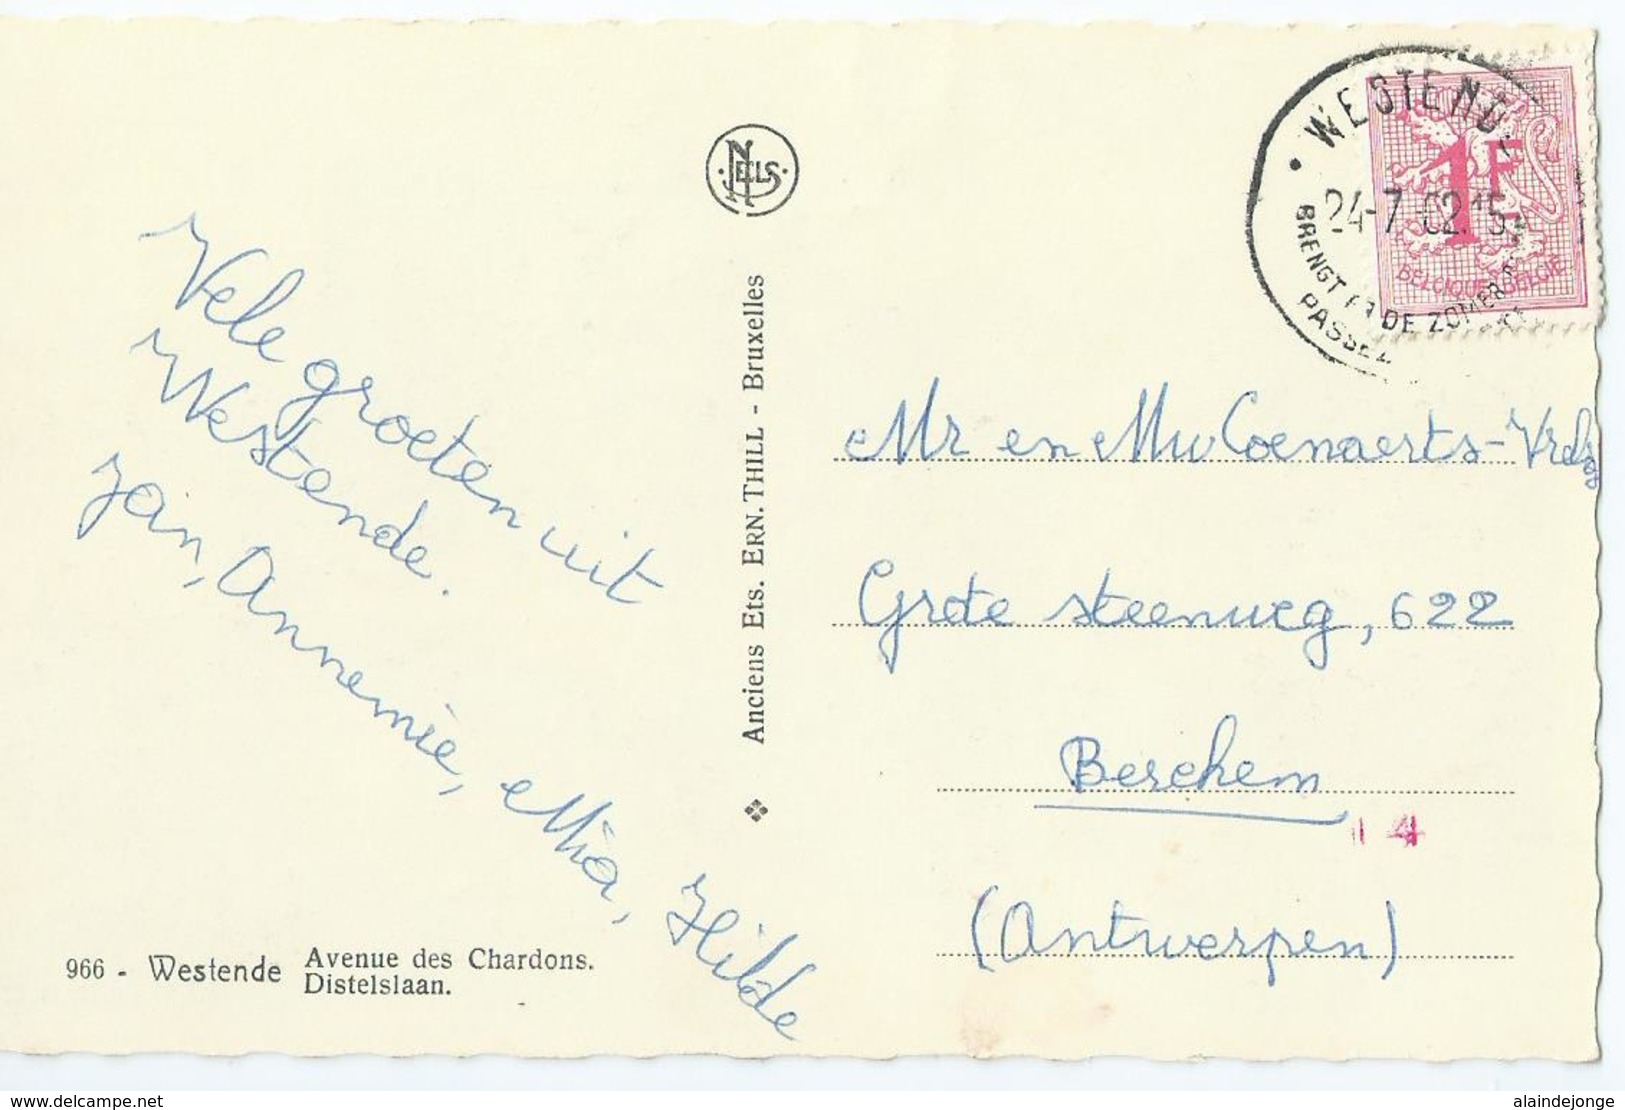 Vele groeten uit
Westende.
Jan, Annemie, Mia, Hilde
966 - Westende Avenue des Chardons.
Distelslaan.
NELS
Anciens Ets. ERN. THILL - Bruxelles
WESTEND
24-7
BRENGT DE ZOMER
PASSEZ
1F
BELGIQUE BELGIE
Mr en Mw Coenaerts-
Grote steenweg, 622
Berchem
14
(Antwerpen)
www.delcampe.net
alaindejonge